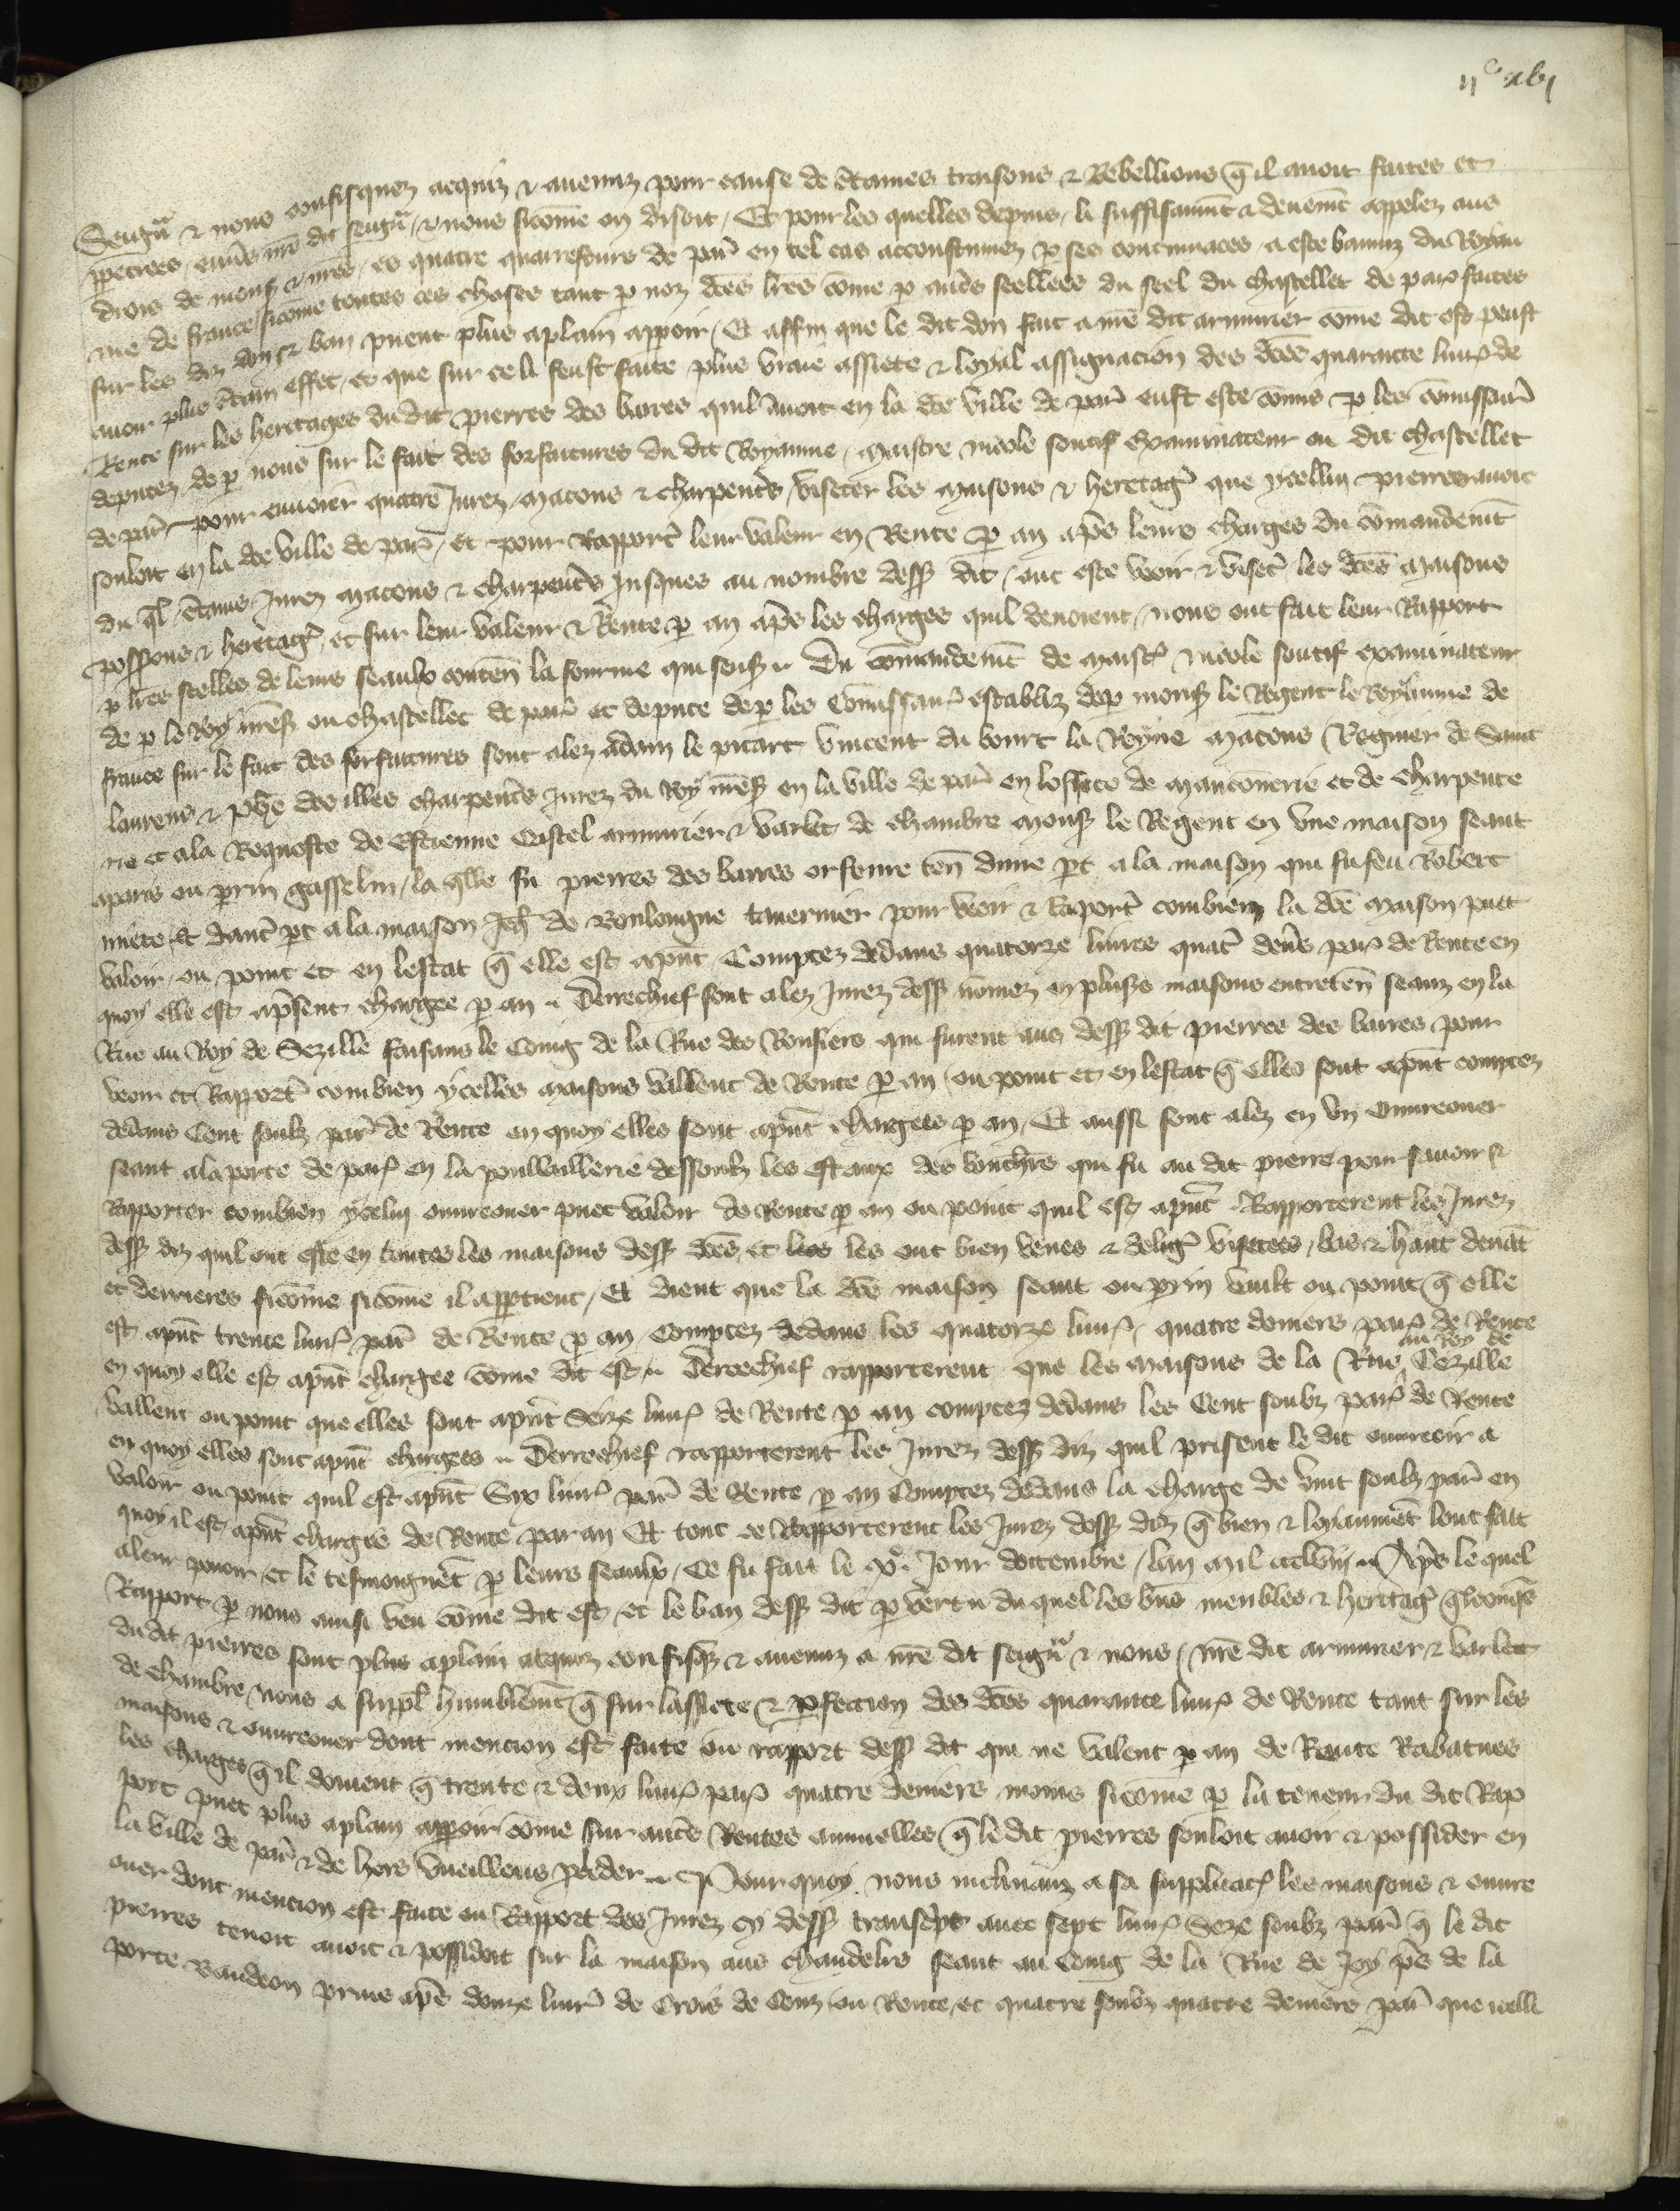 IIc XVI
Seign̄r & nous confisquez acquis & avenuz pour cause de c̄taines traisons & Rebellions q̄ il avoit faites et
ppetrees, env̄s n̄re dit seign̄r, & nous sicōme on disoit, Et pour les quelles depuis, li suffisaum̄t & deuem̄t appelez aus
drois de mons & n̄res, es quatre quarrefours de par̄ en tel cas acconstumez p ses contumaces, a este banniz du Royau
me de france sicōme toutes ces choses tant p noz dc̄es lr̄es cōme p autres seellees du seel du chastellet de par faites
sur les diz don & ban puent plus aplain apparoir, Et affin que le dit don fait a n̄re dit armurier cōme dit est peust
avoir plus c̄tain effet, et que sur ce li feust faite plus vraie assiete & loyal assignacion des dc̄es quarante livr̄ de
Rente sur les heritages du dit pierres des barres quil avoit en la dc̄e ville de par̄ eust este cōmis p les cōmissair̄
deputez de p nous sur le fait des forfaitures du dit Royaume, maistre nicole soutif examinateur ou dit chastellet
de par̄ pour envoier quatre Jurez, macons & charpentrs, visiter les maisons & heritaḡ que ycellui pierres avoit
souloit en la dc̄e ville de par̄, et pour Rapport̄ leur valeur en Rente p an ap̄s leurs charges du cōmandem̄t
du q̄l c̄tains Jurez macons & charpent̄s Jusques au nombre dess dit, ont este veoir & visit̄ les dc̄es maisons
poss̄ons & heritaḡ, et sur leur valeur & Rente p an ap̄s les charges quil devoient, nous ont fait leur Rapport
p lr̄es seelles de leurs seaulx conten̄ la fourme qui sensuit Du cōmandem̄t de maist̄ nicole soutif examinateur
de p le Roy n̄res ou chastellet de par̄ et depute de p les Cōmissair̄ establiz de p mons le Regent le Royaume de
france sur le fait des forfaitures sont alez adam le picart vincent du bourt la Royne macons Regnier de Saint
laurens & phē des illes charpent̄s jurez du Roy n̄res en la ville de par̄ en loffice de maconnerie et de charpente
rie et a la Requeste de Estienne Castel armurier & varlet de chambre mons le Regent en une maison seant
a paris ou prin gasselin, la q̄lle fu pierres des barres orfevre ten̄ dune pt a la maison qui fu feu Robert
miete et daut̄ pt a la maison Jeh̄ de Boulongne tavernier pour veoir & Raport̄ combien la dc̄e maison puet
valoir ou point et en lestat q̄ elle est ap̄nt, Comptez dedans quatorze livres quat̄ den̄s par̄ de Rente en
quoy elle est ap̄sent chargee p an Derrechief sont alez Jurez dess nōmez en plus̄s maisons entreten̄ seanz en la
Rue au Roy de Sezille faisans le Coing de la Rue des Rousiers qui furent aus dess dit pierres des barres pour
veoir et Rapport̄ combien ycelles maisons vallent de Rente p an ou point et en lestat q̄ elles sont ap̄nt comptez
dedans Cent soulz par̄ de Rente en quoy elles sont ap̄nt chargees p an, Et aussi sont alez en un ouvreouer
seant a la porte de par̄ en la poullaillerie dessoubz les estaux des bouch̄rs qui fu au dit pierre pour savoir &
Rapporter combien ycelui ouvreouer puet valoir de Rente p an ou point quil est ap̄nt Rapporterent les Jurez
dess diz quil ont este en toutes les maisons dess dc̄es, et les les ont bien veues & diliḡ visetees, bas & haut devāt
et derrieres sicōme sicōme il appartient, Et dient que la dc̄e maison seant ou prin vault ou point q̄ elle
est ap̄nt trente livr̄ par̄ de Rente p an, Comptez dedans les quatorze livr̄, quatre deniers par̄ de Rente
en quoy elle est ap̄nt chargee cōme dit est Derrechief rapporterent que les maisons de la Rue au Roy de Cezille
vallent ou point que elles sont ap̄nt Seize livr̄ de Rente p an comptez dedans les Cent soulz par̄ de Rente
en quoy elles sont ap̄nt chargees Derrechief rapporterent les Jurez dess diz quil prisent le dit ouvreoir a
valoir ou point quil est ap̄nt Six livr̄ par̄ de Rente p an Comptez dedans la charge de vint soulz par̄ en
quoy il est ap̄nt charges de Rente par an Et tout ce Rapporterent les Jurez dess diz q̄ bien & loyaumēt lont fait
a leur povoir, et le tesmoignēt p leurs seaulx, Ce fu fait le xe Jour doctembre, lan mil ccclviij Ap̄s le quel
Rapport p nous ainsi veu cōme dit est, et le ban dess dit p vertu du quel les biēs meubles & heritaḡ q̄lconq̄s
du dit pierres sont plus aplain acquiz confisq̄z & avenuz a n̄re dit seign̄r & nous, n̄re dit armurier & varlet
de chambre, nous a suppl̄ humblem̄t q̄ sur lassiete & pfection des dc̄es quarante livr̄ de Rente tant sur les
maisons & ouvreouer dont mencion est faite ou rapport dess dit qui ne valent p an de Rente Rabatues
les charges q̄ il doivent q̄ trente & deux livr̄ par̄ quatre deniers moins sicōme p la teneur du dit Rap
port puet plus aplain apparoir cōme sur aut̄s Rentes annuelles q̄ le dit pierres souloit avoir & possider en
la ville de par̄ & de hors vueillons pceder Pour quoy nous inclinanz a sa supplicac̄ les maisons & ouvre
ouer dont mencion est faite ou Rapport des Jurez cy dess transcps avec sept livr̄ seze soulz par̄ q̄ le dit
pierres tenoit avoit & possidoit sur la maison aus chandeliers seant au Coing de la Rue de Joy pres de la
porte Baudeon prins ap̄s douze livr̄ de Crois de Cens ou Rente, et quatre soulz quatre deniers par̄ que icelli